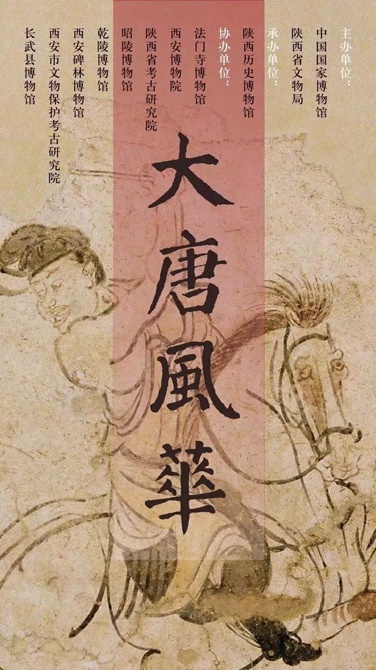 主办单位：
中国国家博物馆
陕西省文物局
承办单位：
陕西历史博物馆
协办单位：
法门寺博物馆
西安博物院
陕西省考古研究院
昭陵博物馆
乾陵博物馆
西安碑林博物馆
西安市文物保护考古研究院
长武县博物馆
大唐風華